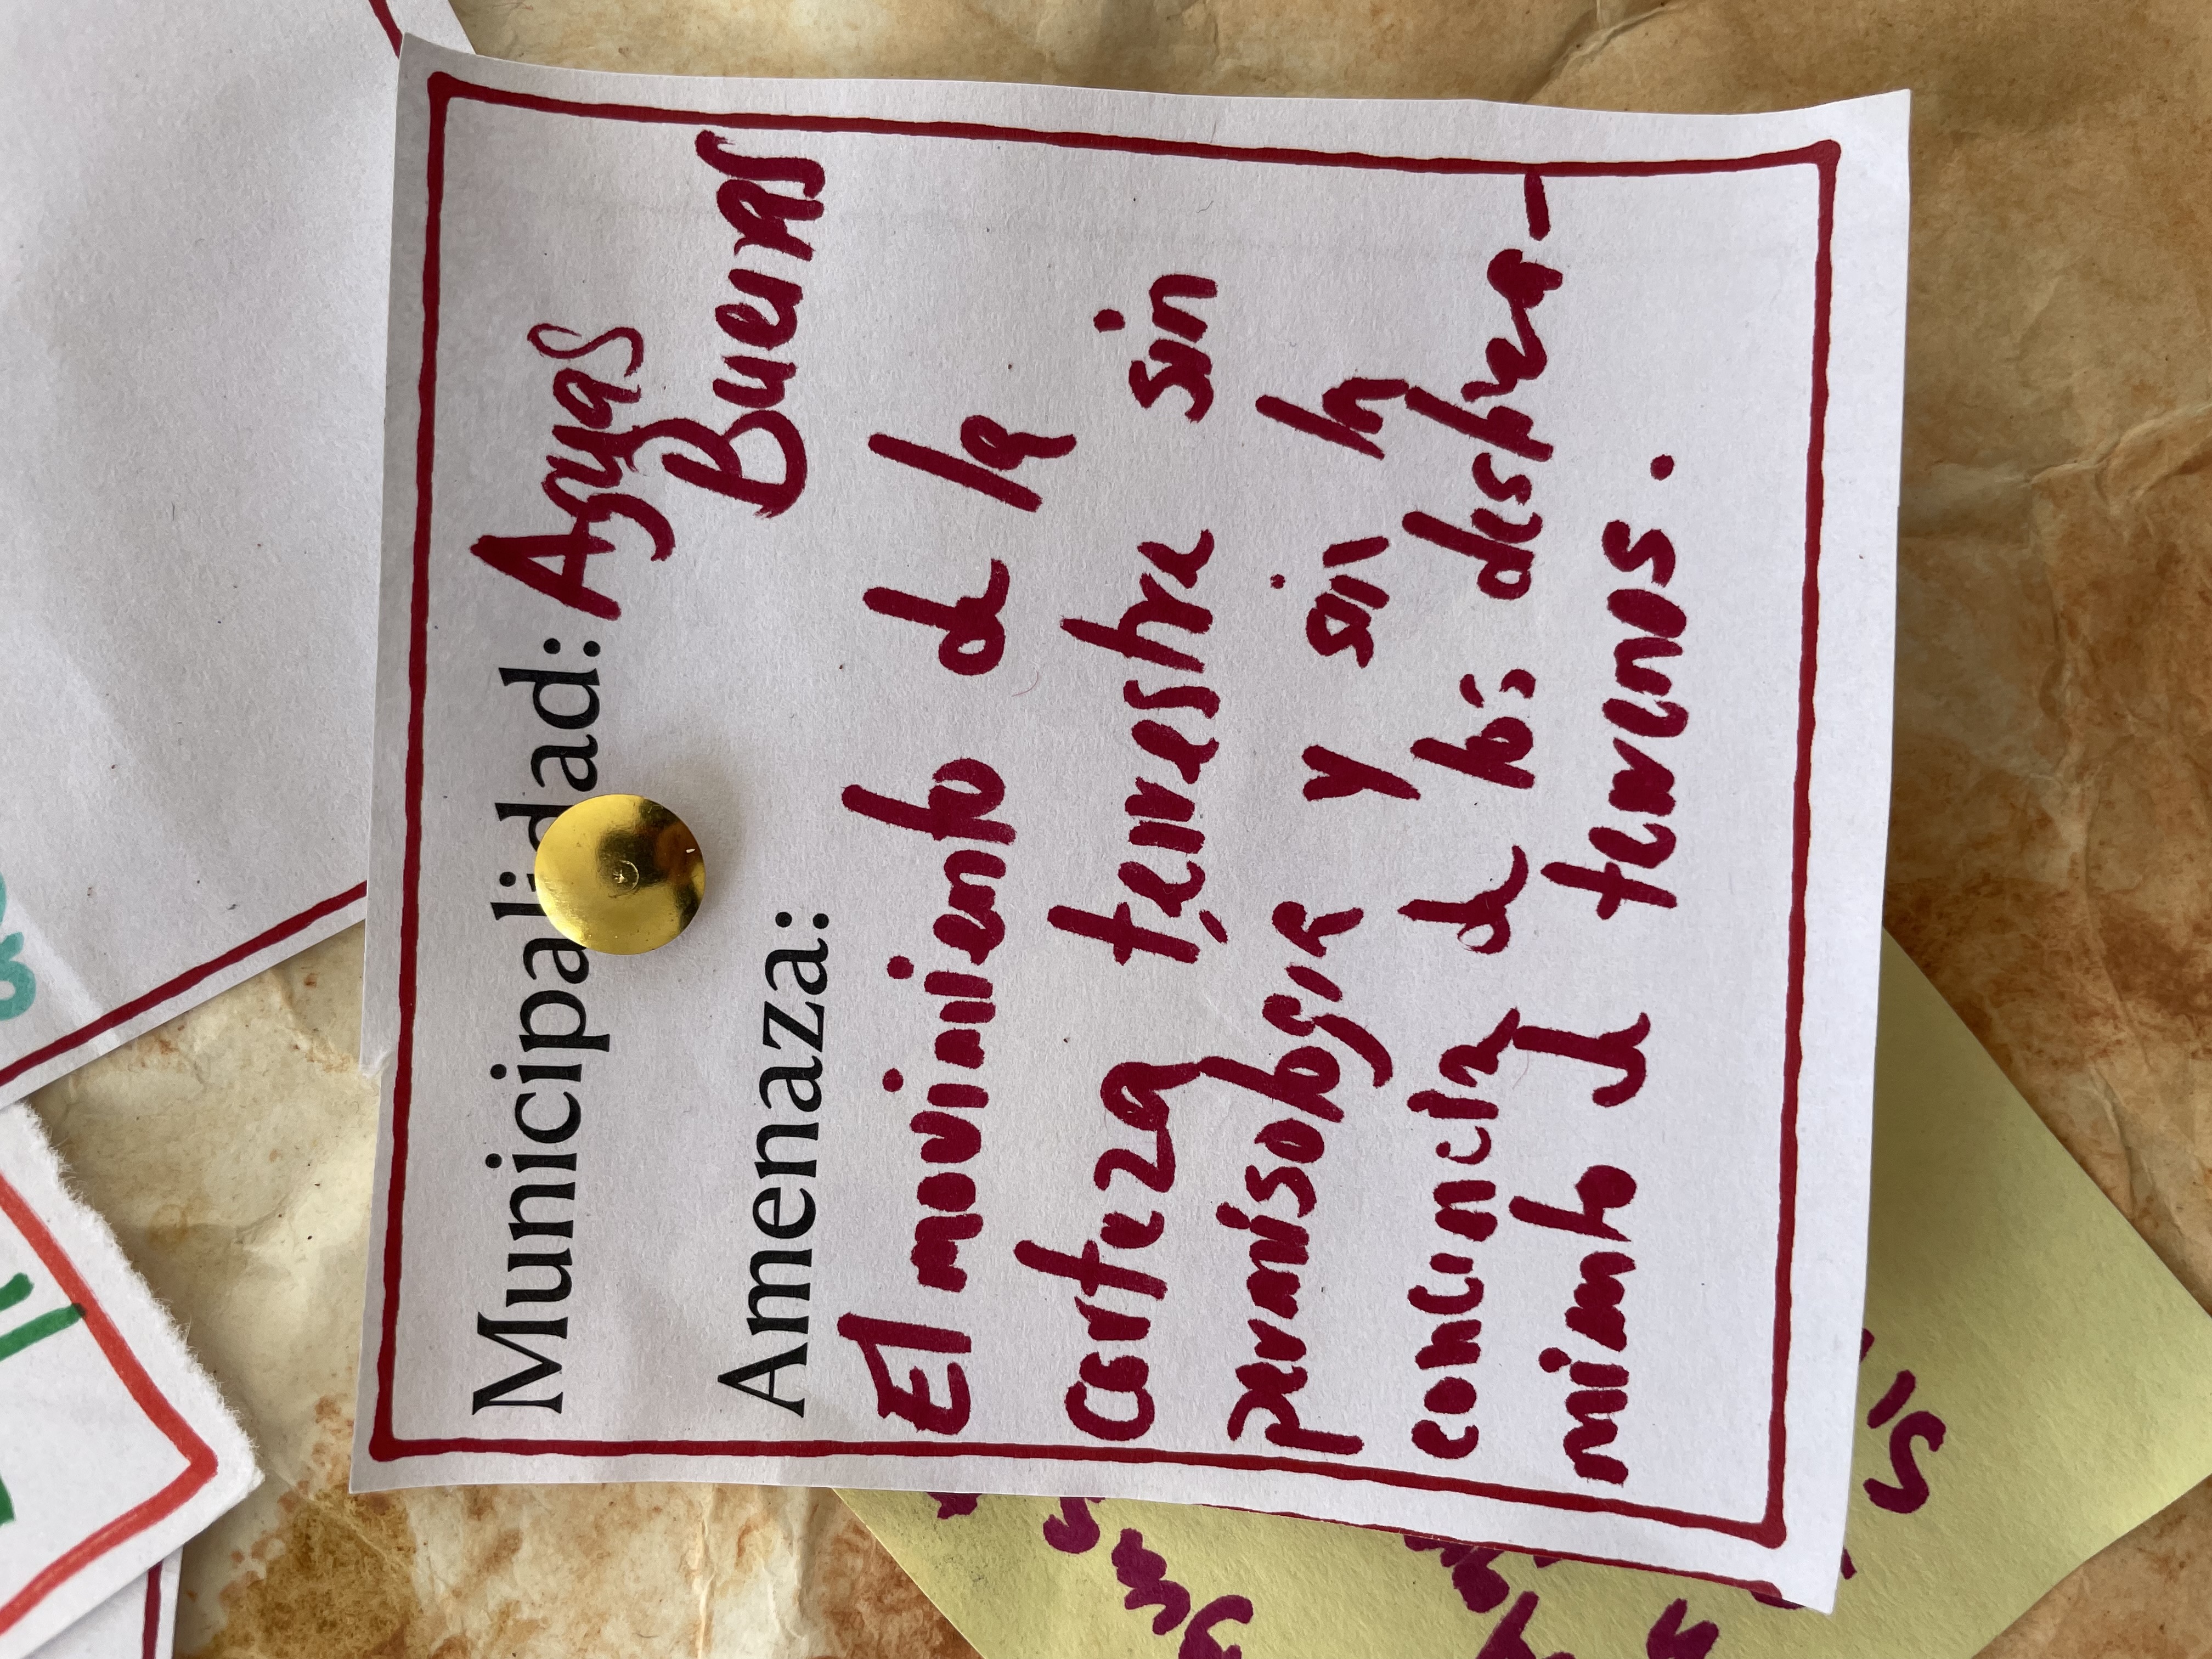 Municipalidad: Aguas
Buenas
Amenaza:
El movimiento de la
corteza terrestre sin
permisología y sin la
conciencia de los destrea-
miento d terrenos.